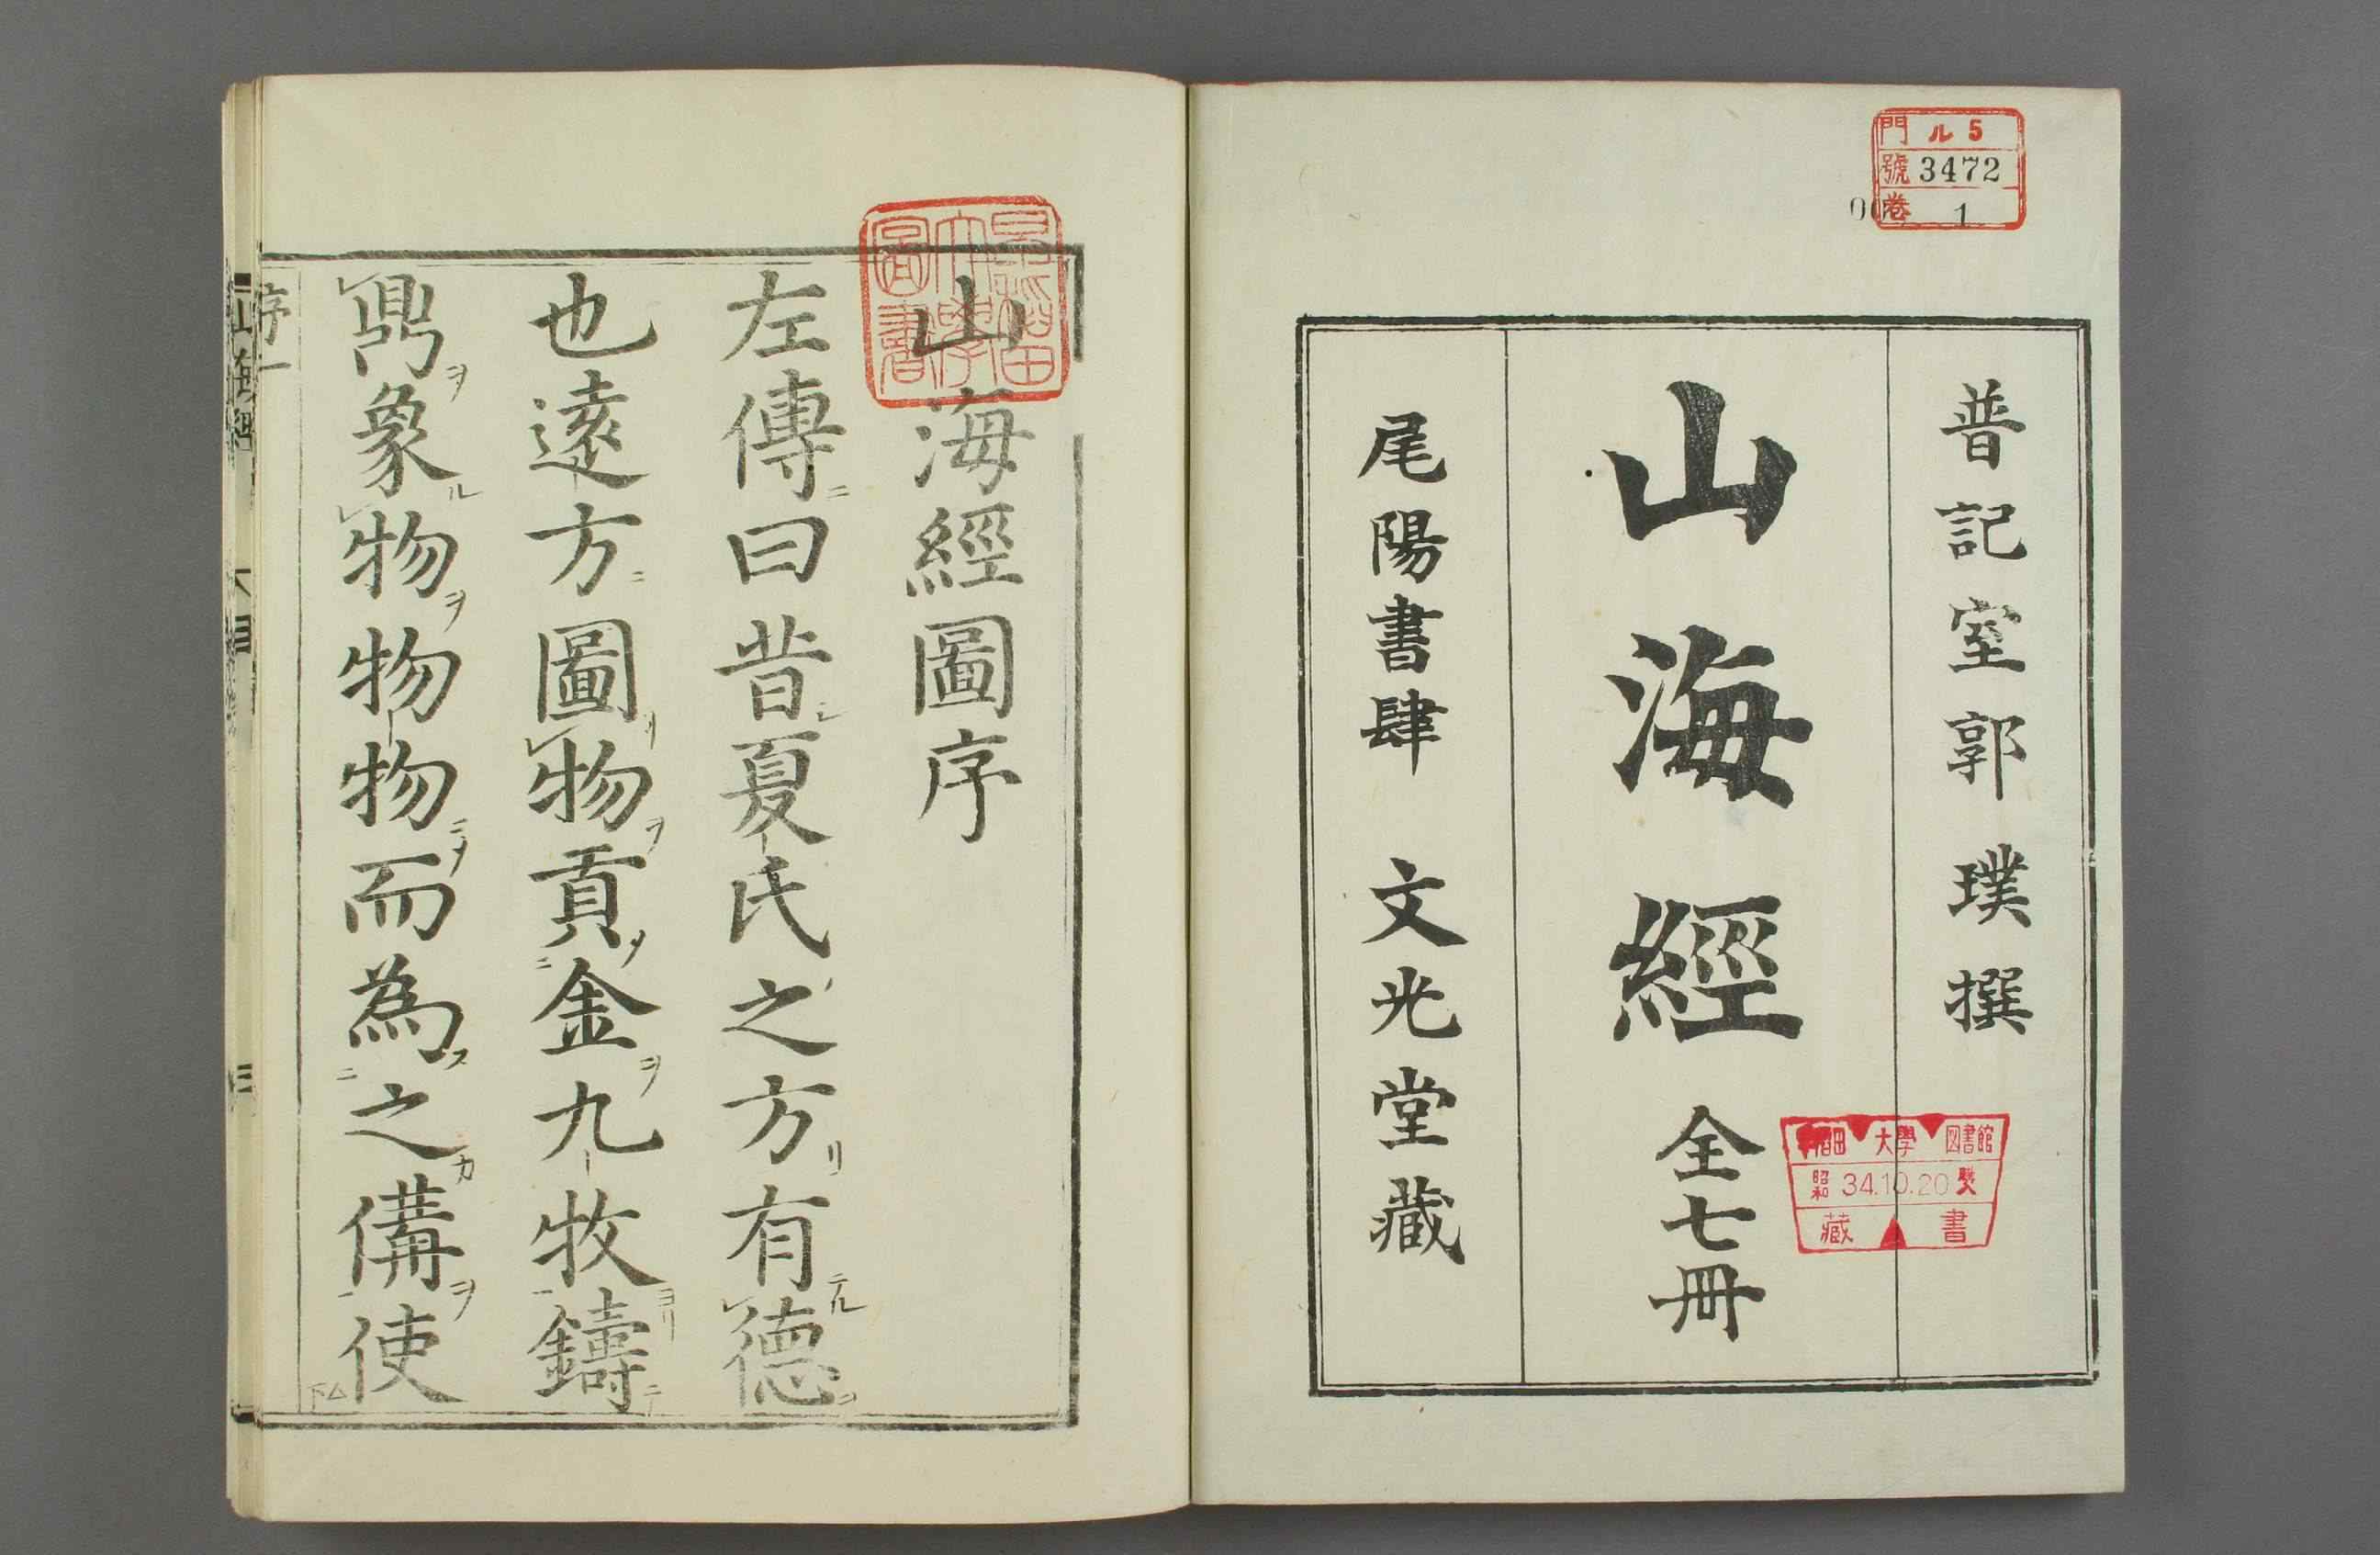 門 ル 5
號 3472
卷 1
普記室郭璞撰
山海經 全七冊
尾陽書肆 文光堂藏
早稲田大學図書館
昭和 34.10.20
藏書
早稲田大學圖書
山海經圖序
左傳曰昔夏氏之方有德
也遠方圖物貢金九牧鑄
鼎象物物物而為之備使
序一
山海經